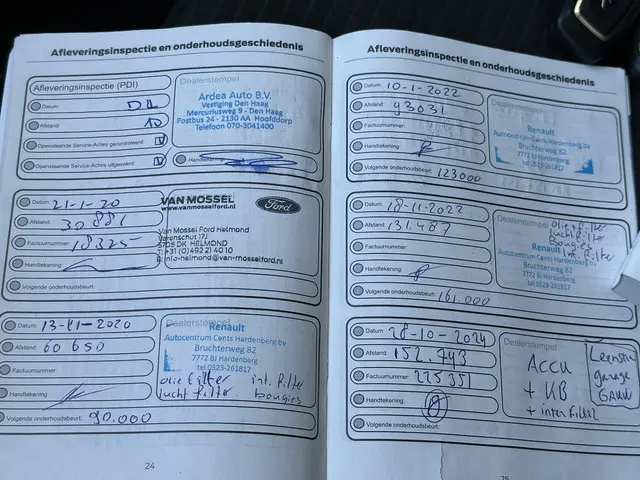 Afleveringsinspectie en onderhoudsgeschiedenis
Afleveringsinspectie (PDI)
Datum:
Afstand:
Openstaande Service-Acties gecontroleerd: V
Openstaande Service-Acties uitgevoerd: V
Dealerstempel
Ardea Auto B.V.
Vestiging Den Haag
Mercuriusweg 9 - Den Haag
Postbus 24 - 2130 AA Hoofddorp
Telefoon 070-3041400
Handtekening:
Datum: 21-1-20
Afstand: 30881
Factuurnummer: 18325
Handtekening:
Volgende onderhoudsbeurt:
VAN MOSSEL
www.vanmosselford.nl
Ford
Van Mossel Ford Helmond
5708 DK HELMOND
T: +31 (0)492 21 40 10
E: info-helmond@van-mosselford.nl
Datum: 13-11-2020
Afstand: 60650
Factuurnummer:
Handtekening:
Volgende onderhoudsbeurt: 90.000
Dealerstempel
Renault
Autocentrum Cents Hardenberg bv
Bruchterweg 82
7772 BJ Hardenberg
tel.0523-261817
olie filter int. filter
lucht filter bougies
24
Afleveringsinspectie en onderhoudsgeschiedenis
Datum: 10-1-2022
Afstand: 93031
Factuurnummer:
Handtekening:
Volgende onderhoudsbeurt: 123000
Dealerstempel
Renault
Autocentrum Cents Hardenberg bv
Bruchterweg 82
7772 BJ Hardenberg
tel.0523-261817
Datum: 18-11-2022
Afstand: 131.487
Factuurnummer:
Handtekening:
Volgende onderhoudsbeurt: 161.000
Dealerstempel
olie filter
lucht filter
bougies
int. filter
Renault
Autocentrum Cents Hardenberg bv
Bruchterweg 82
7772 BJ Hardenberg
tel.0523-261817
Datum: 28-10-2024
Afstand: 152.743
Factuurnummer: 225351
Handtekening:
Volgende onderhoudsbeurt:
Dealerstempel
ACCU
+ KB
garage
25